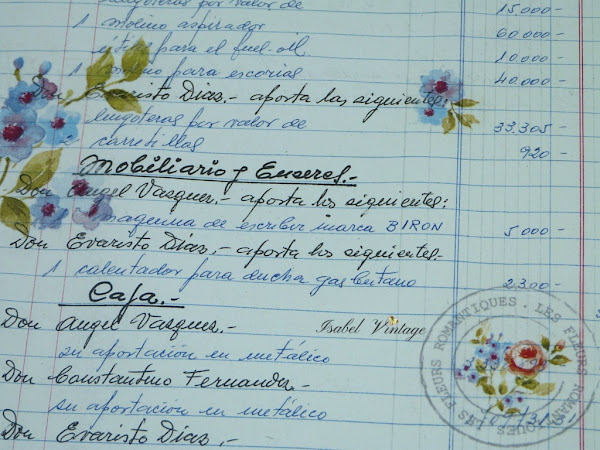 lingoteras por valor de 15.000-
1 molino aspirador 60.000-
útil para el fuel-oil 10.000-
1 molino para escorias 40.000-
Don Evaristo Diaz.- aporta los siguientes:
lingoteras por valor de 33.305-
carretillas 920-
Mobiliario y Enseres.-
Don Angel Vasquez.- aporta los siguientes:
maquina de escribir marca BIRON 5.000-
Don Evaristo Diaz.- aporta los siguientes.-
1 calentador para ducha gas butano 2.300-
Caja.-
Don Angel Vasquez.-
Isabel Vintage
su aportación en metálico
Don Constantino Fernandez.-
su aportación en metálico
Don Evaristo Diaz.-
LES FLEURS ROMANTIQUES . LES FLEURS ROMANTIQUES